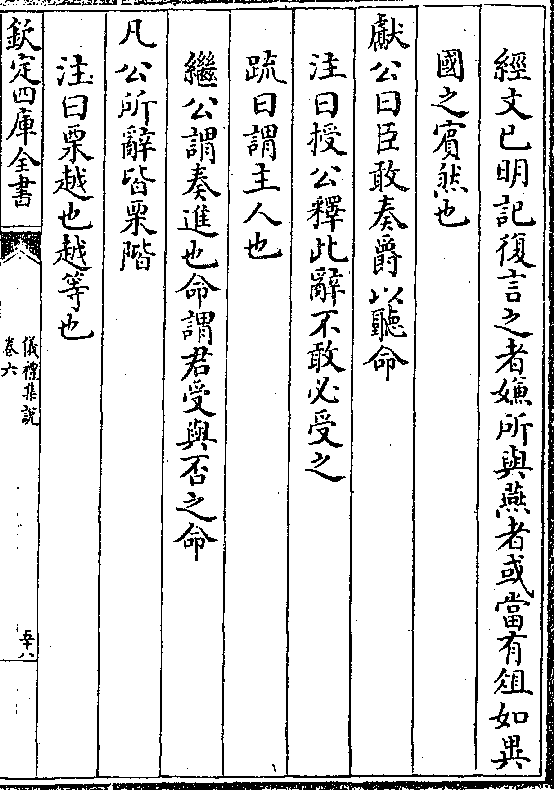 經文已明記復言之者嫌所與燕者或當有俎如異
國之賓然也
獻公曰臣敢奏爵以聽命
注曰授公釋此辭不敢必受之
疏曰謂主人也
繼公謂奏進也命謂君受與否之命
凡公所辭皆栗階
注曰栗越也越等也
欽定四庫全書
儀禮集說
卷六
五十八